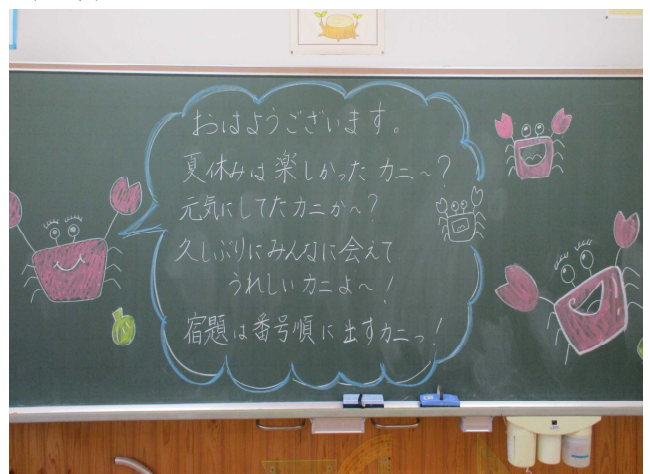 おはようございます。
夏休みは楽しかったカニ～?
元気にしてたカニか～?
久しぶりにみんなに会えて
うれしいカニよ～!
宿題は番号順に出すカニっ!